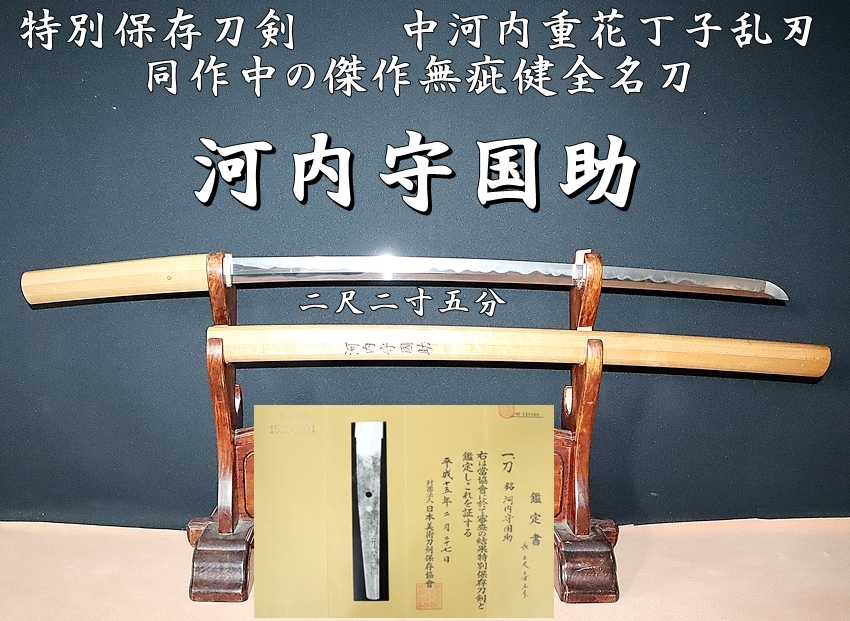 特別保存刀剣　　中河内重花丁子乱刃
同作中の傑作無疵健全名刀
河内守国助
二尺二寸五分
河内守國助
鑑定書
一、刀 銘 河内守国助
長 二尺二寸五分
右は當協會に於て審査の結果特別保存刀剣と
鑑定しこれを証する
平成十五年二月二十七日
財團法人 日本美術刀剣保存協會